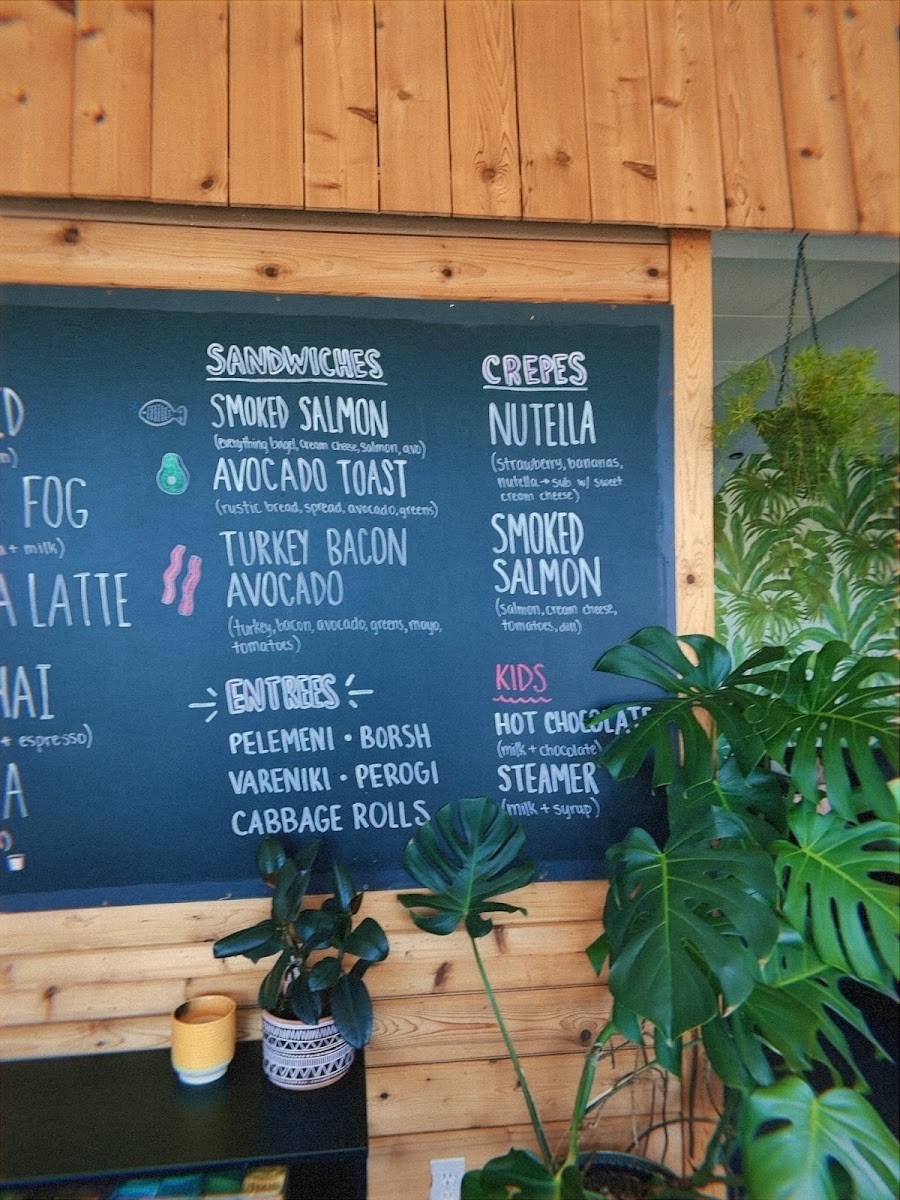 FOG
+ milk)
LATTE
+ espresso)
SANDWICHES
SMOKED SALMON
(everything bagel, cream cheese, salmon, avo)
AVOCADO TOAST
(rustic bread, spread, avocado, greens)
TURKEY BACON
AVOCADO
(turkey, bacon, avocado, greens, mayo,
tomatoes)
ENTREES
PELEMENI • BORSH
VARENIKI • PEROGI
CABBAGE ROLLS
CREPES
NUTELLA
(strawberry, bananas,
nutella → sub w/ sweet
cream cheese)
SMOKED
SALMON
(salmon, cream cheese,
tomatoes, dill)
KIDS
HOT CHOCOLATE
(milk + chocolate)
STEAMER
(milk + syrup)